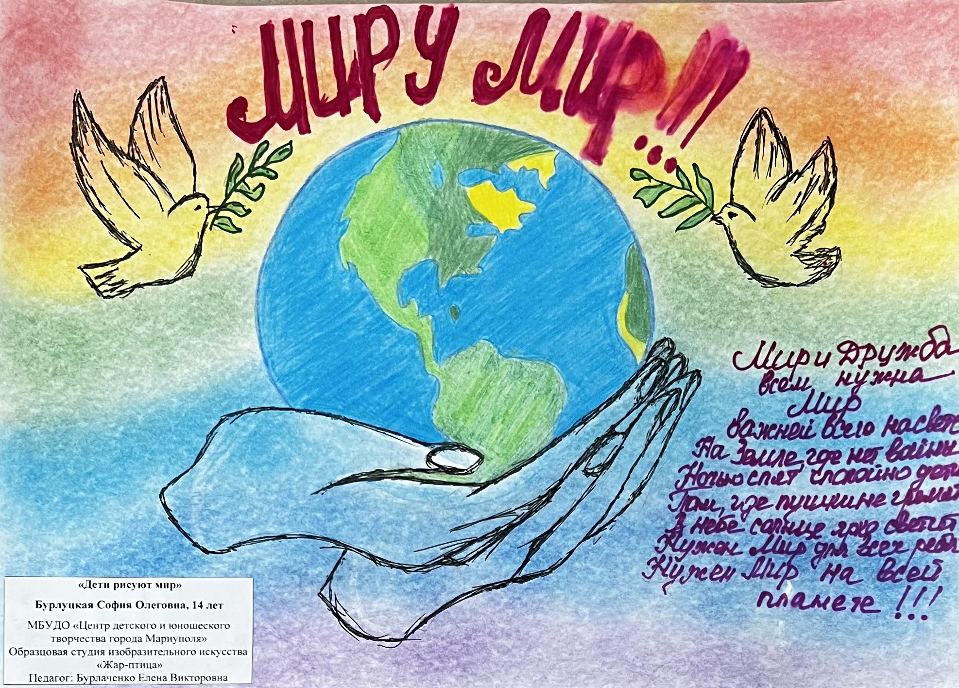 МИРУ МИР!!!
Мир и Дружба
всем нужна
Мир
важней всего на свете
На Земле, где нет войны
Ночью спят спокойно дети
Там, где пушки не гремят
В небе солнце ярко светит
Нужен Мир для всех ребят
Нужен Мир на всей
планете !!!
«Дети рисуют мир»
Бурлуцкая София Олеговна, 14 лет
МБУДО «Центр детского и юношеского
творчества города Мариуполя»
Образцовая студия изобразительного искусства
«Жар-птица»
Педагог: Бурлаченко Елена Викторовна